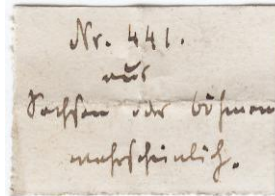 Nr. 441.
aus
Sachsen oder böhmen
wahrscheinlich.